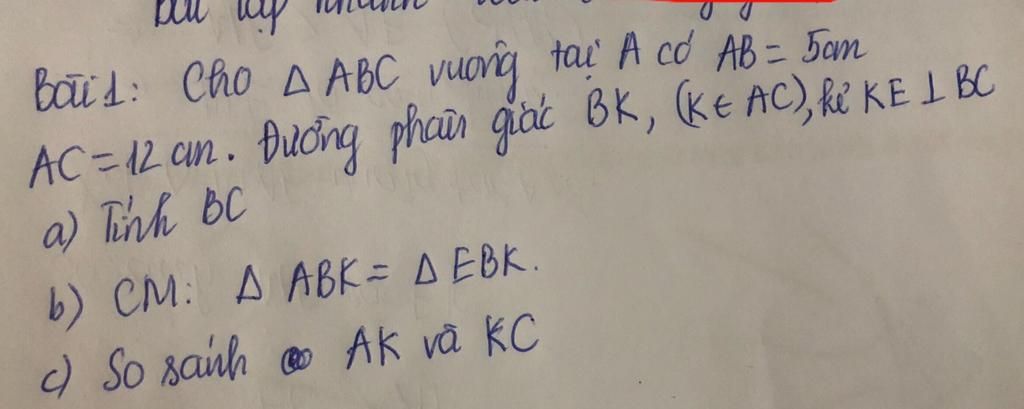 Bài 1: Cho Δ ABC vuông tại A có AB = 5cm
AC = 12 cm. Đường phân giác BK, (K ∈ AC), kẻ KE ⊥ BC
a) Tính BC
b) CM: Δ ABK = Δ EBK.
c) So sánh AK và KC